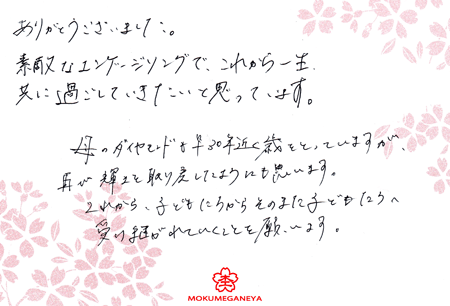 ありがとうございました。
素敵なエンゲージリングで、これから一生
共に過ごしていきたいと思っています。
母のダイヤモンドも早30年近く歳をとっていますが、
再び輝きを取り戻したようにも思います。
これから、子どもたちからそのまた子どもたちへ
受け継がれていくことを願います。
MOKUMEGANEYA